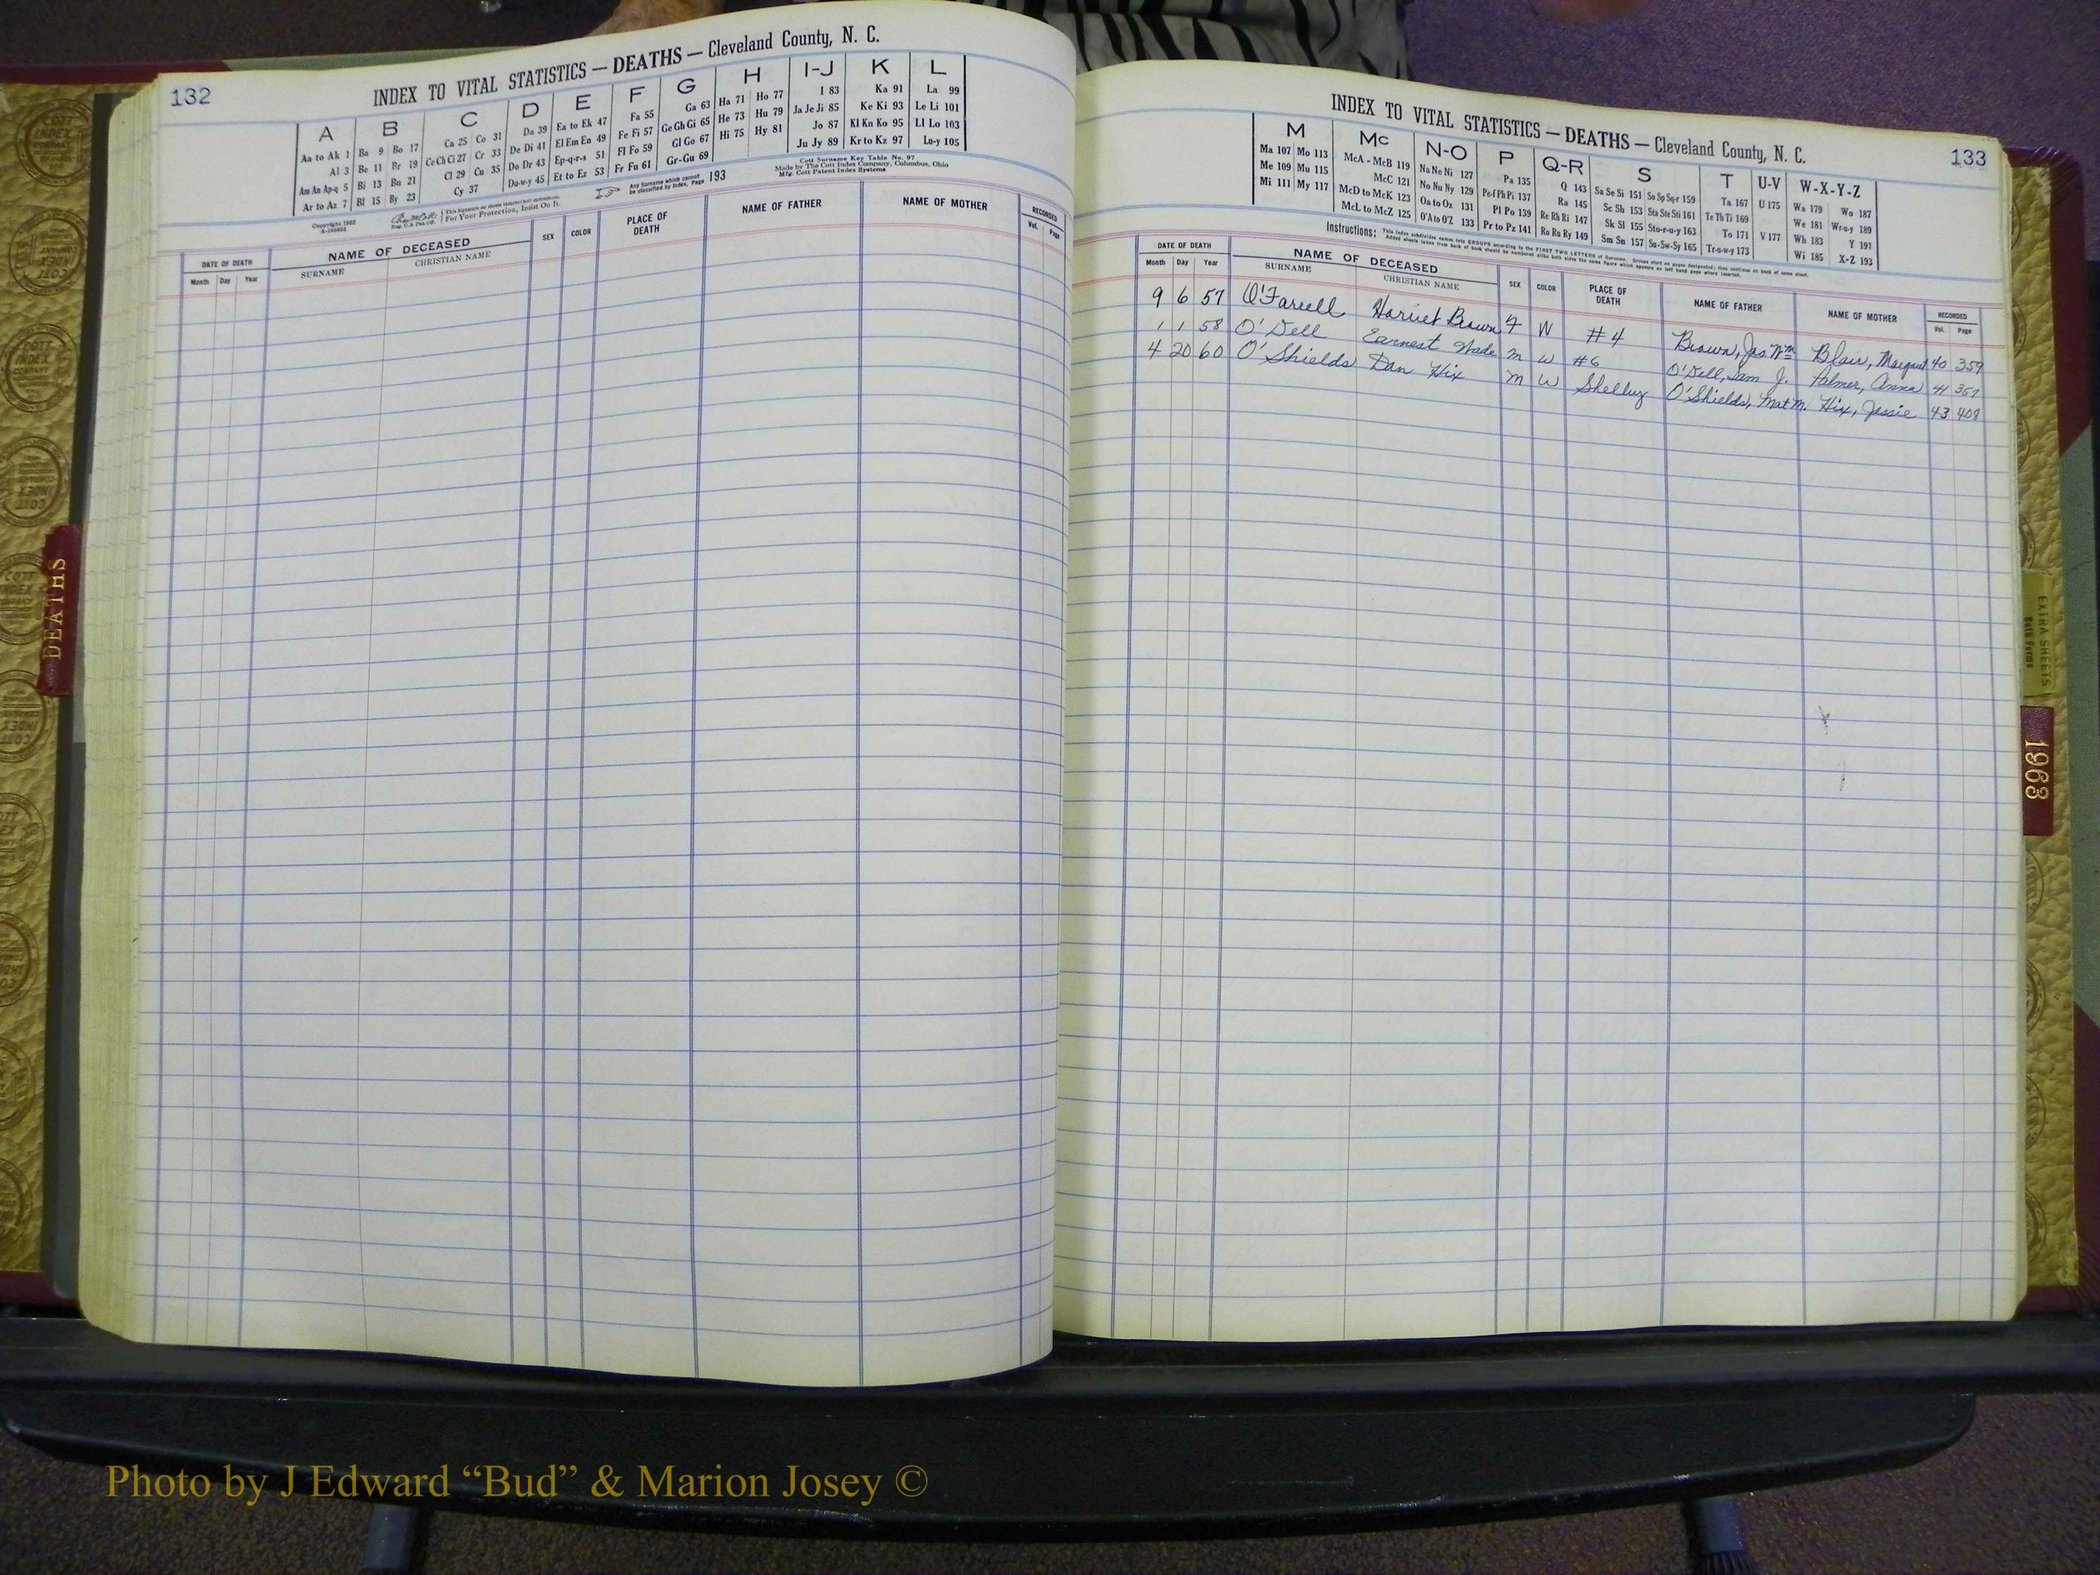 132
INDEX TO VITAL STATISTICS — DEATHS — Cleveland County, N. C.
A B C D E F G H I-J K L
Aa to Ak 1 Ba 9 Bo 17 Ca 25 Co 31 Da 39 Ea to Ek 47 Fa 55 Ga 63 Ha 71 Ho 77 I 83 Ka 91 La 99
Al 3 Be 11 Br 19 Ce Ch Ci 27 Cr 33 De Di 41 El Em En 49 Fe Fi 57 Ge Gh Gi 65 He 73 Hu 79 Ja Je Ji 85 Ke Ki 93 Le Li 101
Am An Ap-q 5 Bi 13 Bu 21 Cl 29 Cu 35 Do Dr 43 Ep-q-r-s 51 Fl Fo 59 Gl Go 67 Hi 75 Hy 81 Jo 87 Kl Kn Ko 95 Ll Lo 103
Ar to Az 7 Bl 15 By 23 Cy 37 Du-w-y 45 Et to Ez 53 Fr Fu 61 Gr-Gu 69 Ju Jy 89 Kr to Kz 97 Lu-y 105
Cott Surname Key Table No. 97
Made by The Cott Index Company, Columbus, Ohio
Mfg. Cott Patent Index Systems
Any Surname which cannot be classified by index, Page 193
For Your Protection, Insist On It.
DATE OF DEATH NAME OF DECEASED SEX COLOR PLACE OF DEATH NAME OF FATHER NAME OF MOTHER RECORDED
Month Day Year SURNAME CHRISTIAN NAME Vol. Page
INDEX TO VITAL STATISTICS — DEATHS — Cleveland County, N. C.
133
M Mc N-O P Q-R S T U-V W-X-Y-Z
Ma 107 Mo 113 McA - McB 119 Na Ne Ni 127 Pa 135 Q 143 Sa Se Si 151 So Sp Sq-r 159 Ta 167 U 175 Wa 179 Wo 187
Me 109 Mu 115 McC 121 No Nu Ny 129 Pe-f Ph Pi 137 Ra 145 Sc Sh 153 Sta Ste Sti 161 Te Th Ti 169 We 181 Wr-u-y 189
Mi 111 My 117 McD to McK 123 Oa to Oz 131 Pl Po 139 Re Rh Ri 147 Sk Sl 155 Sto-r-u-y 163 To 171 V 177 Wh 183 Y 191
McL to McZ 125 O'A to O'Z 133 Pr to Pz 141 Ro Ru Ry 149 Sm Sn 157 Su-Sw-Sy 165 Tr-u-w-y 173 Wi 185 X-Z 193
Instructions: This index subdivides names into GROUPS according to the FIRST TWO LETTERS of Surname.
DATE OF DEATH NAME OF DECEASED SEX COLOR PLACE OF DEATH NAME OF FATHER NAME OF MOTHER RECORDED
Month Day Year SURNAME CHRISTIAN NAME Vol. Page
9 6 57 O'Farrell Harriet Brown F W #4 Brown, Jas Wm Blair, Margaret 40 359
1 1 58 O'Dell Earnest Wade M W #6 O'Dell, Sam J. Palmer, Anna 41 357
4 20 60 O'Shields Dan Hix M W Shelby O'Shields, Mat M. Hix, Jessie 43 408
DEATHS
EXTRA SHEETS
Both Forms
1968
Photo by J Edward “Bud” & Marion Josey ©